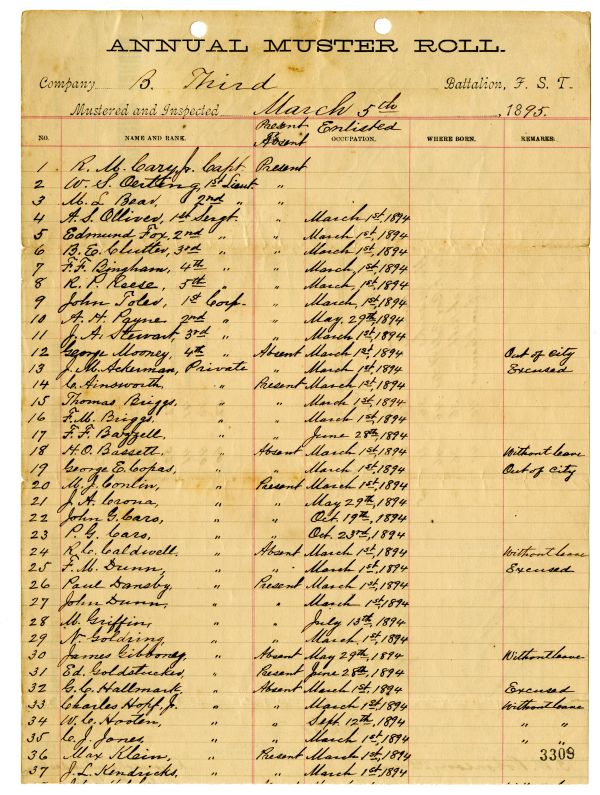 ANNUAL MUSTER ROLL.
Company B. Third Battalion, F. S. T.
Mustered and Inspected March 5th 1895.
Present Enlisted
or Absent
NO. NAME AND RANK. OCCUPATION. WHERE BORN. REMARKS.
1 R. M. Cary, Jr. Capt. Present
2 W. S. Oerting, 1st Lieut "
3 M. L. Bear, 2nd " "
4 A. S. Olliver, 1st Sergt. " March 1st, 1894
5 Edmund Fox, 2nd " " March 1st, 1894
6 B. E. Clutter, 3rd " " March 1st, 1894
7 F. F. Bingham, 4th " " March 1st, 1894
8 R. P. Reese, 5th " " March 1st, 1894
9 John Toler, 1st Corp. " March 1st, 1894
10 A. H. Payne 2nd " " May 29th, 1894
11 J. A. Stewart, 3rd " " March 1st, 1894
12 George Mooney, 4th " Absent March 1st, 1894 Out of City
13 J. M. Ackerman, Private " March 1st, 1894 Excused
14 C. Ainsworth, " Present March 1st, 1894
15 Thomas Briggs, " " March 1st, 1894
16 F. M. Briggs, " " March 1st, 1894
17 F. F. Bazzell, " " June 28th, 1894
18 H. O. Bassett, " Absent March 1st, 1894 Without leave
19 George E. Copas, " " March 1st, 1894 Out of City
20 M. J. Conlin, " Present March 1st, 1894
21 J. A. Crona, " " May 29th, 1894
22 John G. Cars, " " Oct. 19th, 1894
23 P. G. Cars, " " Oct. 23rd, 1894
24 R. C. Caldwell, " Absent March 1st, 1894 Without leave
25 F. M. Dunn, " " March 1st, 1894 Excused
26 Paul Dansby, " Present March 1st, 1894
27 John Dunn, " " March 1st, 1894
28 M. Griffin, " " July 13th, 1894
29 N. Goldring " " March 1st, 1894
30 James Gibboney, " Absent May 29th, 1894 Without leave
31 Ed. Goldstucker, " Present June 28th, 1894
32 G. C. Hallmark, " Absent March 1st, 1894 Excused
33 Charles Hopf, Jr. " " March 1st, 1894 Without leave
34 W. C. Hooten, " " Sept. 12th, 1894 " "
35 C. J. Jones, " " March 1st, 1894 " "
36 Max Klein, " Present March 1st, 1894
3309
37 J. L. Kendricks, " " March 1st, 1894